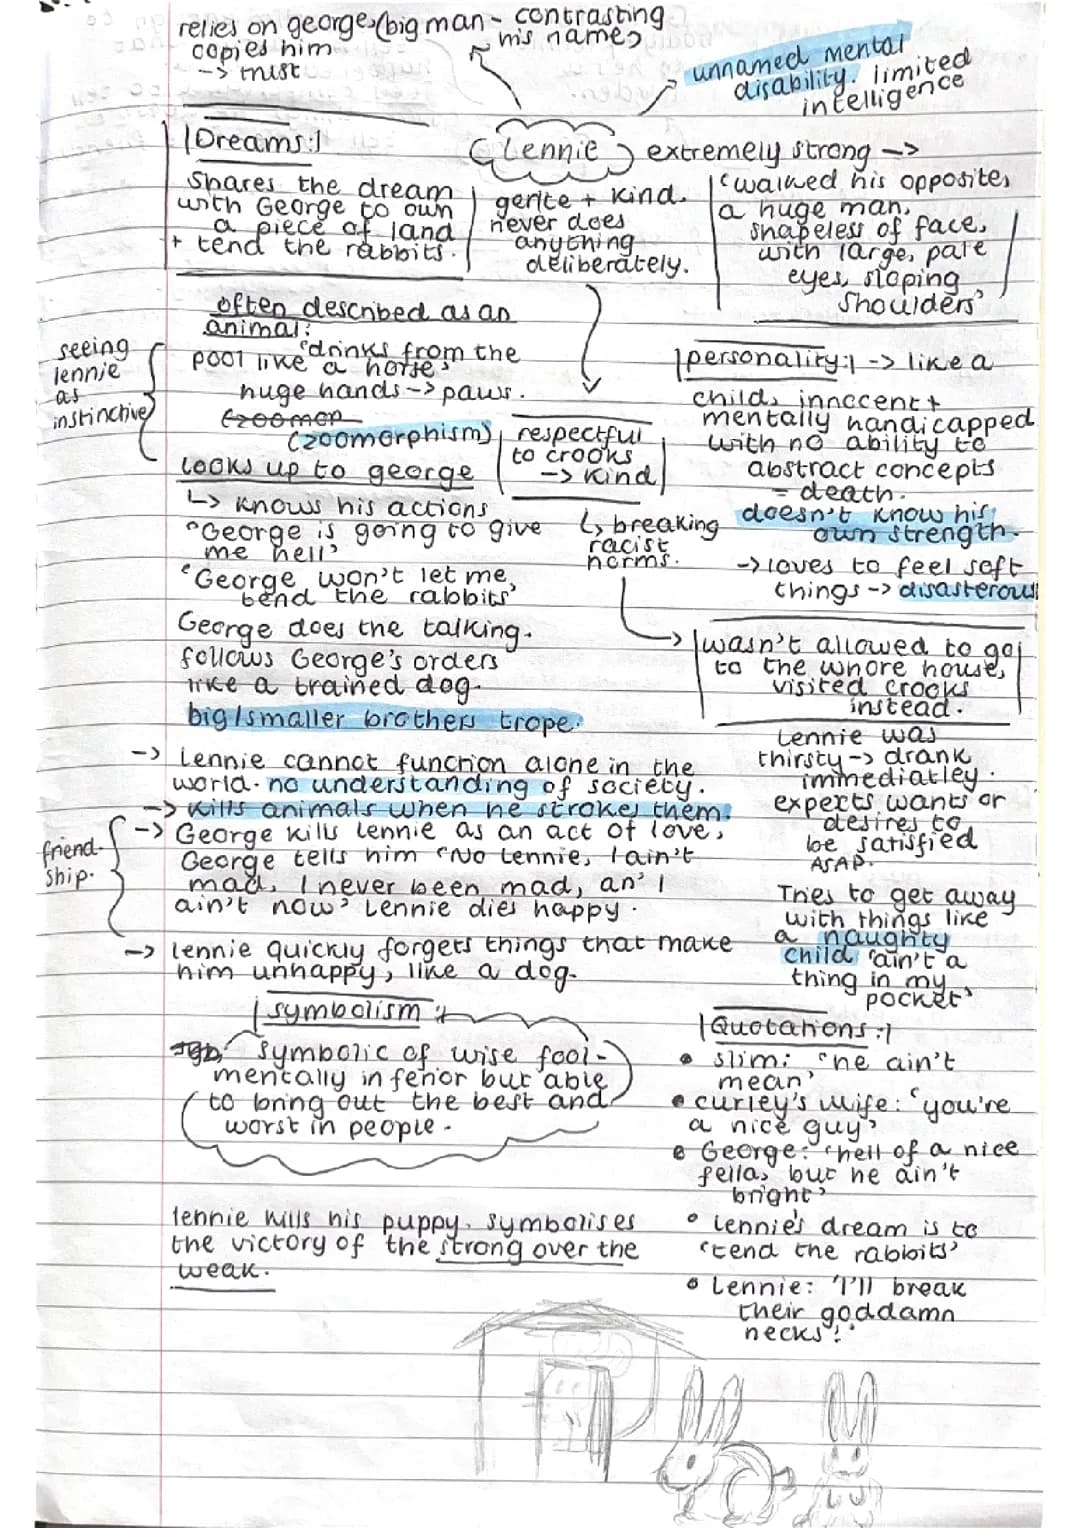 relies on george,
copies him
-> trust
(big man - contrasting
his name)
unnamed mental
disability. limited
intelligence
Lennie
|Dreams:|
Shares the dream
with George to own
a piece of land
+ tend the rabbits.
gentle + kind.
never does
anything
deliberately.
extremely strong ->
'walked his opposite,
a huge man,
shapeless of face,
with large, pale
eyes, sloping
shoulders'
often described as an
animal:
'drinks from the
pool like a horse'
huge hands -> paws.
(zoomorphism)
seeing
lennie
as
instinctive
respectful
to crooks
-> kind
↳ breaking
racist
norms.
|personality:| -> like a
child, innocent +
mentally handicapped
with no ability to
abstract concepts
= death.
doesn't know his
own strength.
-> loves to feel soft
things -> disasterous
looks up to george
↳ knows his actions
"George is going to give
me hell'
'George won't let me,
bend the rabbits'
George does the talking.
follows George's orders
like a trained dog.
big/smaller brothers trope.
-> wasn't allowed to go
to the whore house,
visited crooks
instead.
Lennie was
thirsty -> drank
immediatley.
expects wants or
desires to
be satisfied
ASAP.
Tries to get away
with things like
a naughty
child 'ain't a
thing in my
pocket'
-> Lennie cannot function alone in the
world. no understanding of society.
-> kills animals when he strokes them.
-> George kills Lennie as an act of love,
George tells him 'No Lennie, I ain't
mad, I never been mad, an' I
ain't now' Lennie dies happy.
friend-
ship.
-> lennie quickly forgets things that make
him unhappy, like a dog.
|symbolism:|
symbolic of wise fool -
mentally inferior but able
to bring out the best and
worst in people.
lennie kills his puppy. symbolises
the victory of the strong over the
weak.
|Quotations:|
• slim: "he ain't
mean'
• curley's wife: 'you're
a nice guy'
• George: 'hell of a nice
fella, but he ain't
bright'
• Lennie's dream is to
'tend the rabbits'
• Lennie: 'I'll break
their goddamn
necks!'